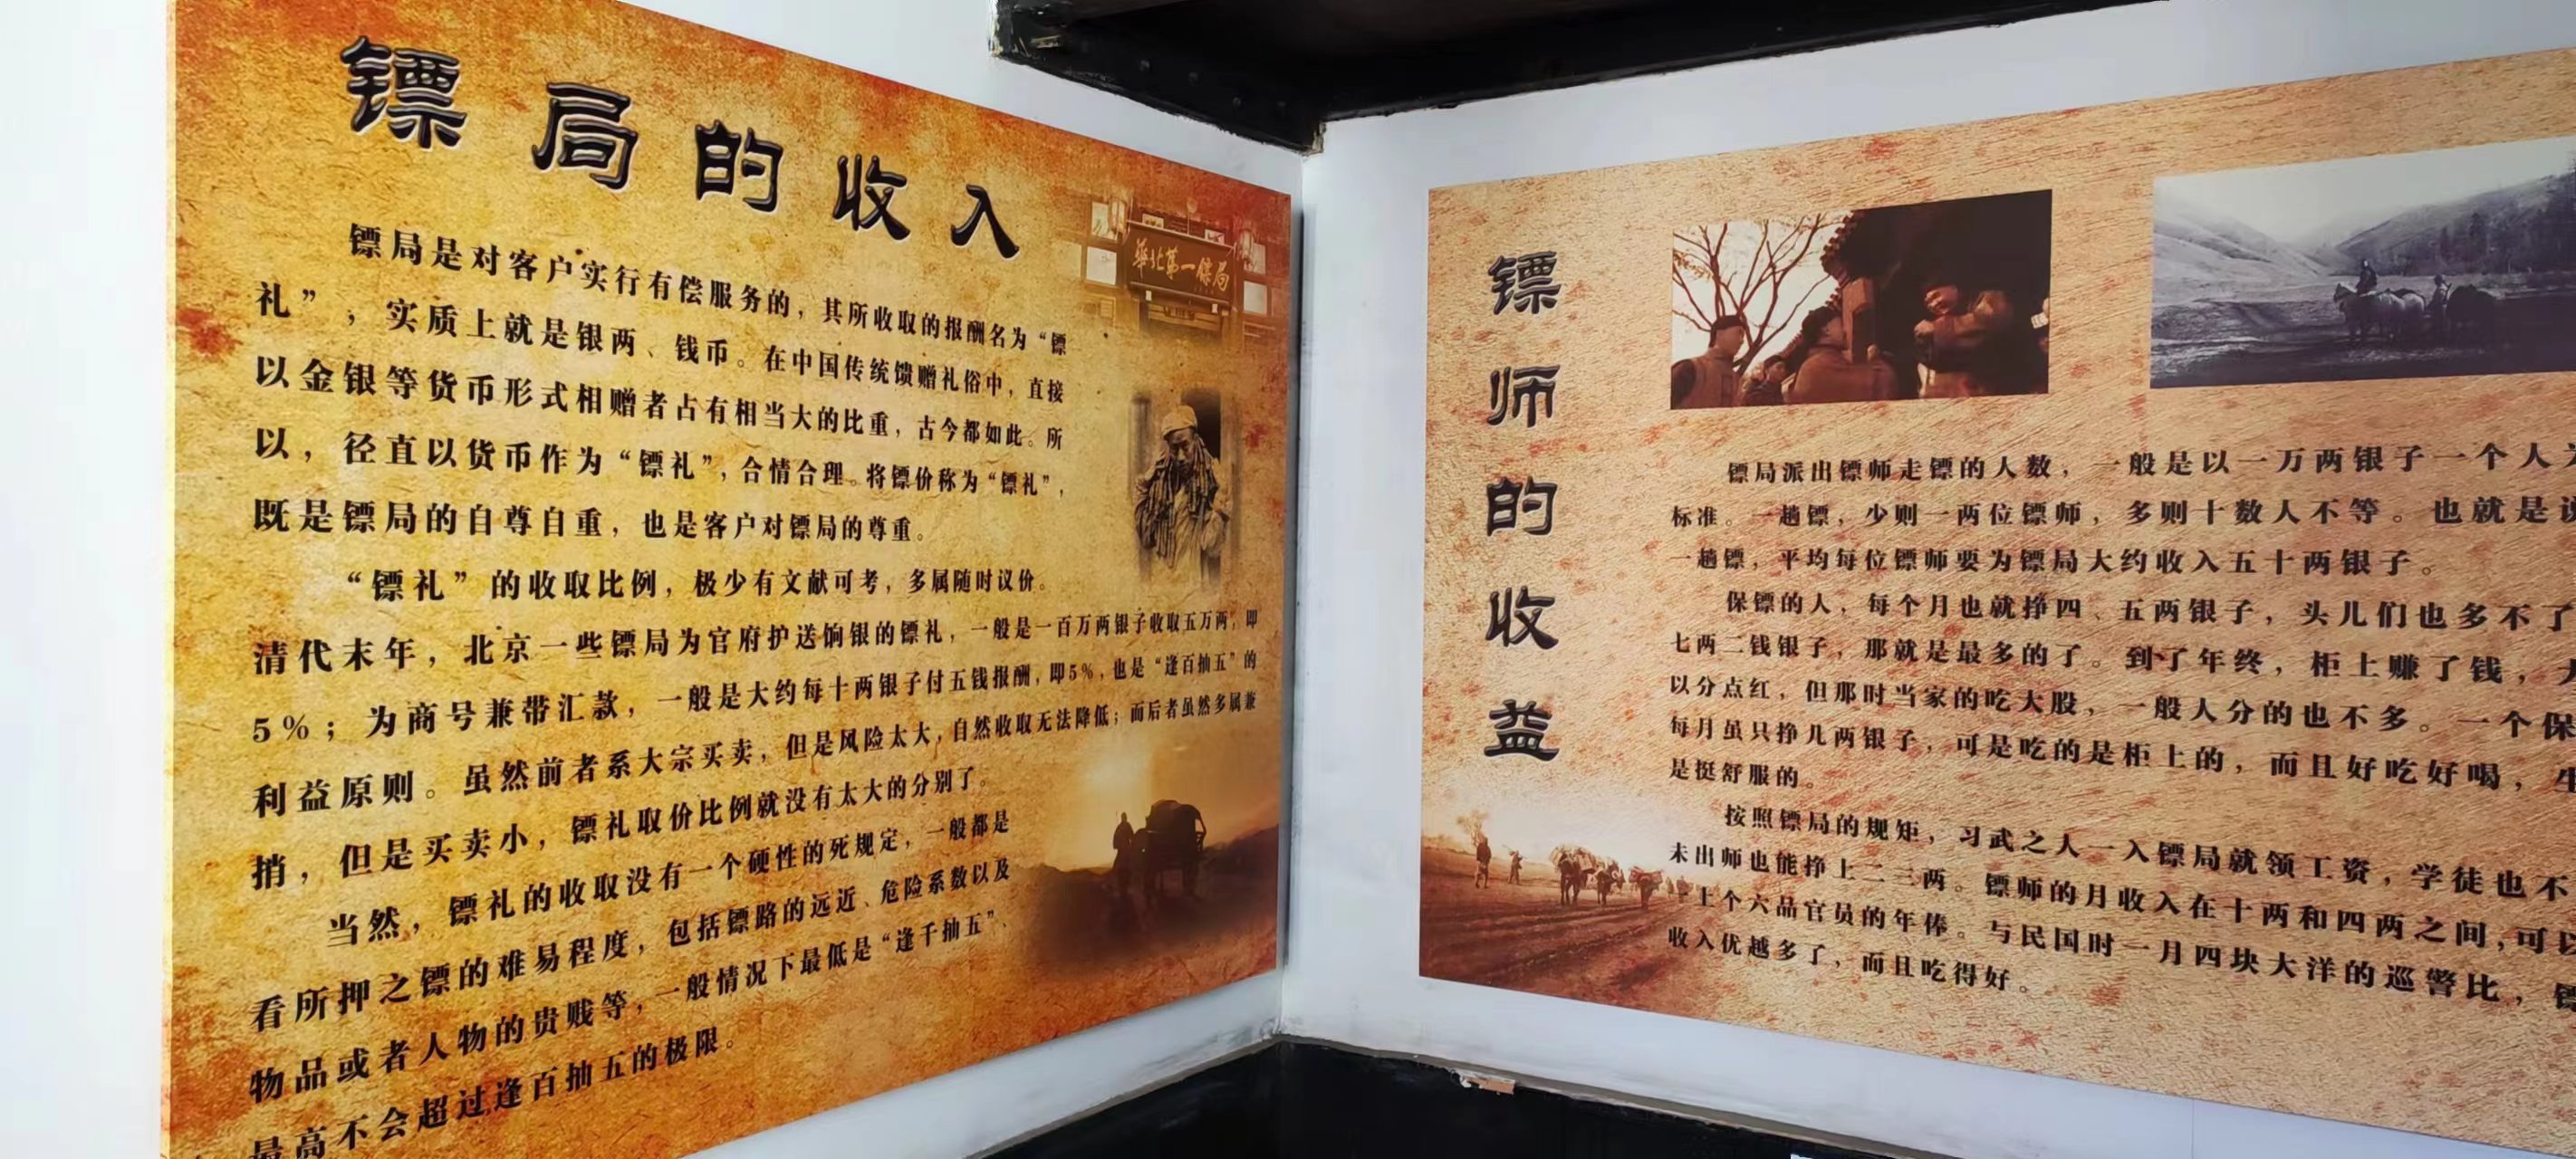 镖局的收入
華北第一镖局
镖局是对客户实行有偿服务的，其所收取的报酬名为“镖
礼”，实质上就是银两、钱币。在中国传统馈赠礼俗中，直接
以金银等货币形式相赠者占有相当大的比重，古今都如此。所
以，径直以货币作为“镖礼”，合情合理。将镖价称为“镖礼”，
既是镖局的自尊自重，也是客户对镖局的尊重。
“镖礼”的收取比例，极少有文献可考，多属随时议价。
清代末年，北京一些镖局为官府护送饷银的镖礼，一般是一百万两银子收取五万两，即
5%；为商号兼带汇款，一般是大约每十两银子付五钱报酬，即5%，也是“逢百抽五”的
利益原则。虽然前者系大宗买卖，但是风险太大，自然收取无法降低；而后者虽然多属兼
捎，但是买卖小，镖礼取价比例就没有太大的分别了。
当然，镖礼的收取没有一个硬性的死规定，一般都是
看所押之镖的难易程度，包括镖路的远近、危险系数以及
物品或者人物的贵贱等，一般情况下最低是“逢千抽五”、
最高不会超过逢百抽五的极限。
镖师的收益
镖局派出镖师走镖的人数，一般是以一万两银子一个人为
标准。一趟镖，少则一两位镖师，多则十数人不等。也就是说
一趟镖，平均每位镖师要为镖局大约收入五十两银子。
保镖的人，每个月也就挣四、五两银子，头儿们也多不了
七两二钱银子，那就是最多的了。到了年终，柜上赚了钱，
以分点红，但那时当家的吃大股，一般人分的也不多。一个保
每月虽只挣几两银子，可是吃的是柜上的，而且好吃好喝，生
是挺舒服的。
按照镖局的规矩，习武之人一入镖局就领工资，学徒也不
未出师也能挣上二三两。镖师的月收入在十两和四两之间，可以
上个六品官员的年俸。与民国时一月四块大洋的巡警比，镖
收入优越多了，而且吃得好。